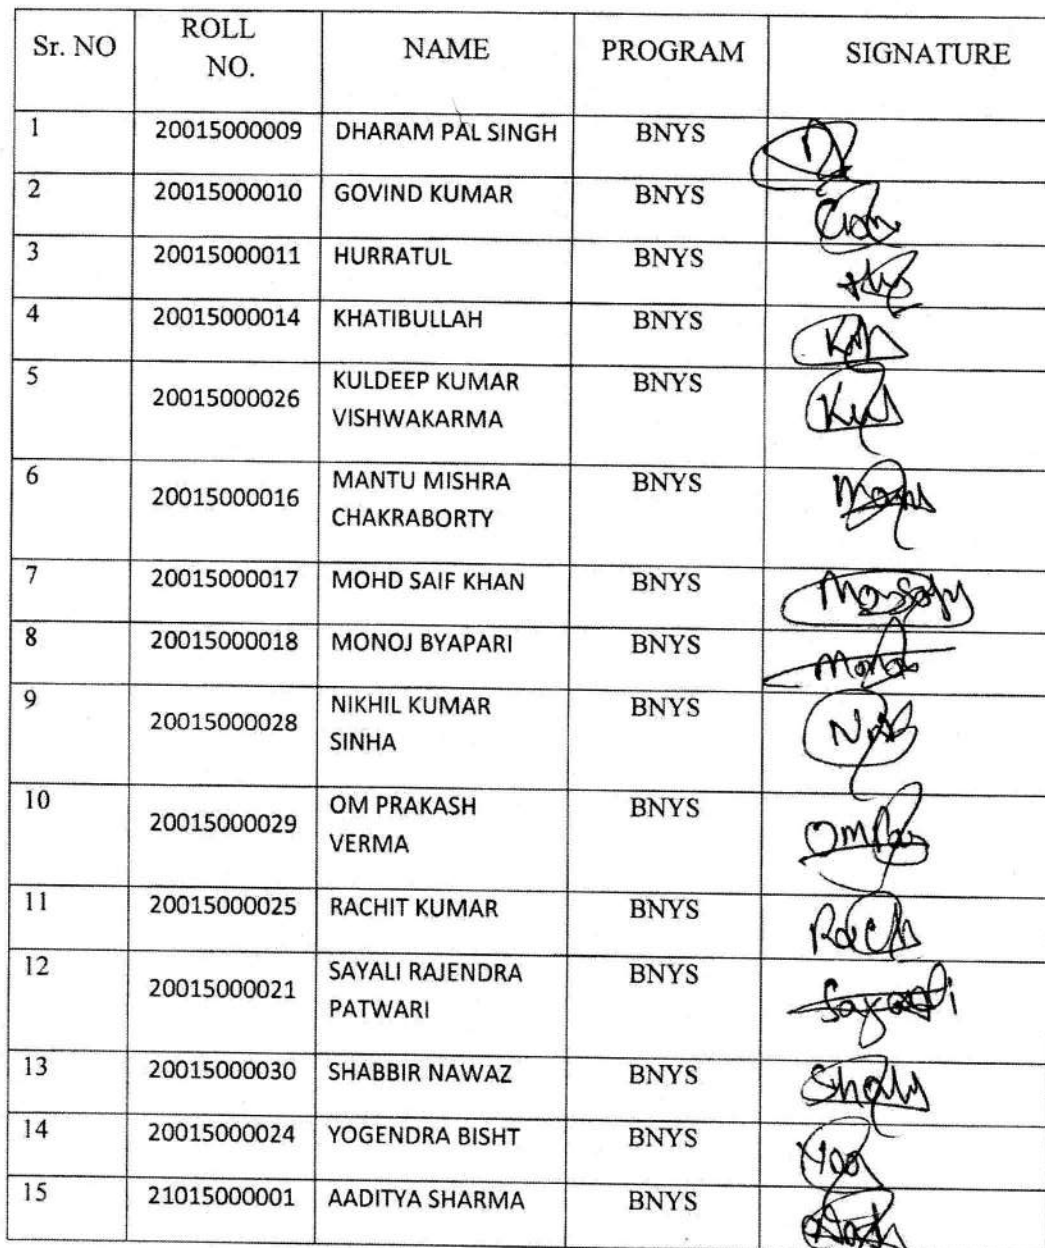 Sr. NO ROLL NO. NAME PROGRAM SIGNATURE
1 20015000009 DHARAM PAL SINGH BNYS
2 20015000010 GOVIND KUMAR BNYS
3 20015000011 HURRATUL BNYS
4 20015000014 KHATIBULLAH BNYS
5 20015000026 KULDEEP KUMAR VISHWAKARMA BNYS
6 20015000016 MANTU MISHRA CHAKRABORTY BNYS
7 20015000017 MOHD SAIF KHAN BNYS
8 20015000018 MONOJ BYAPARI BNYS
9 20015000028 NIKHIL KUMAR SINHA BNYS
10 20015000029 OM PRAKASH VERMA BNYS
11 20015000025 RACHIT KUMAR BNYS
12 20015000021 SAYALI RAJENDRA PATWARI BNYS
13 20015000030 SHABBIR NAWAZ BNYS
14 20015000024 YOGENDRA BISHT BNYS
15 21015000001 AADITYA SHARMA BNYS